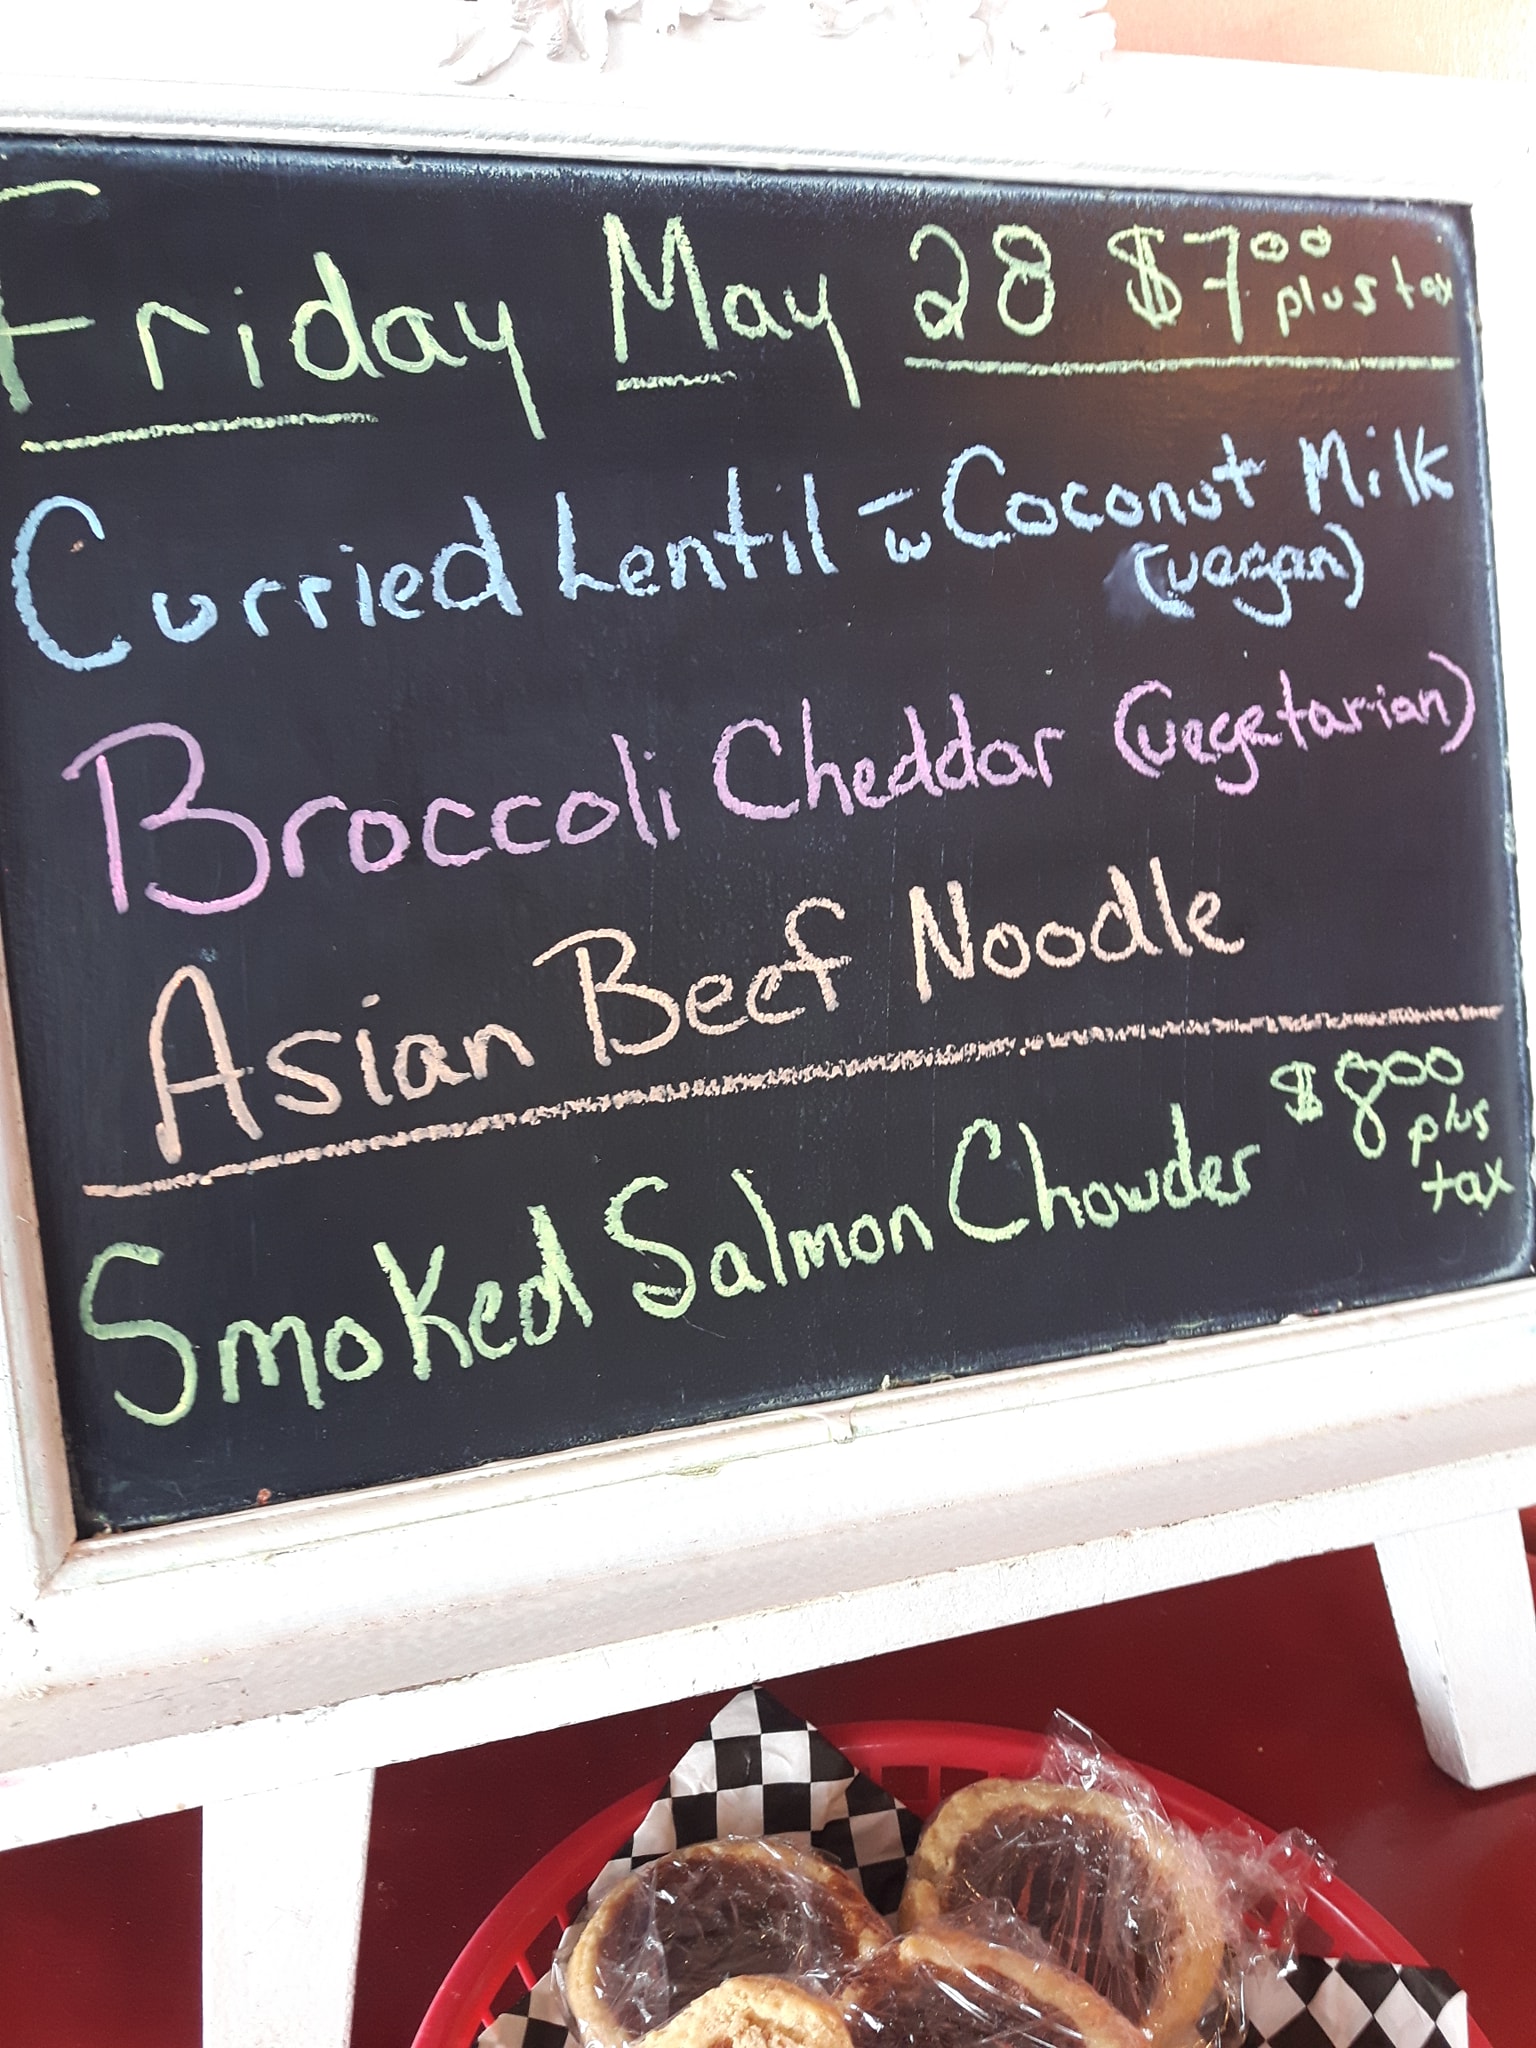 Friday May 28 $7⁰⁰ plus tax
Curried Lentil w̅ Coconut Milk
(vegan)
Broccoli Cheddar (vegetarian)
Asian Beef Noodle
Smoked Salmon Chowder $8⁰⁰ plus tax